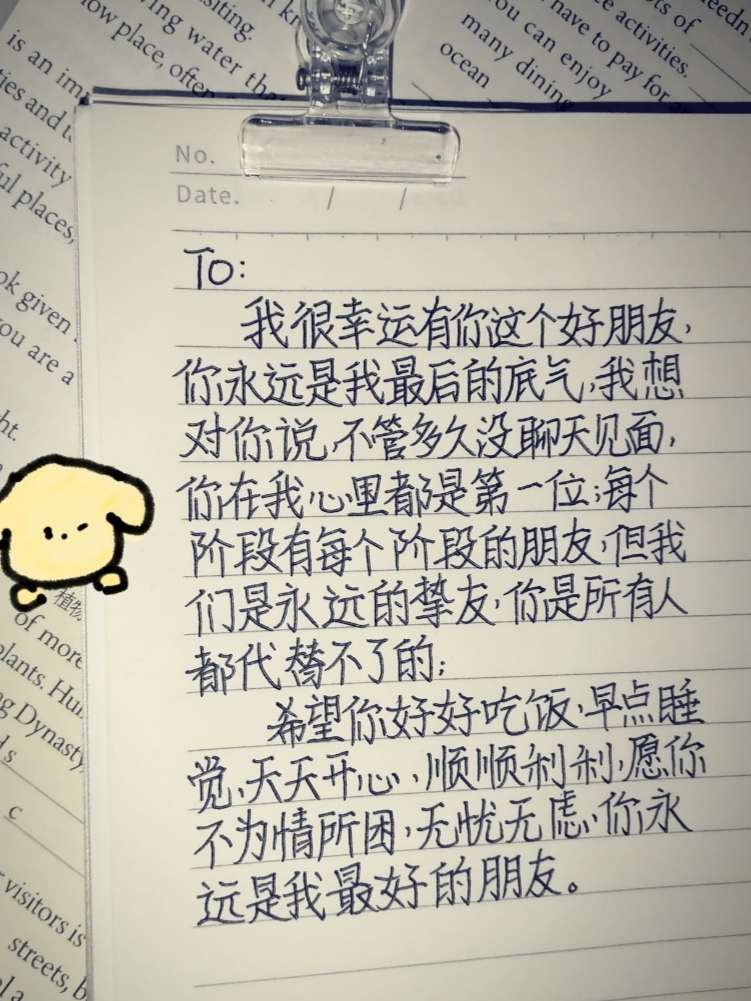 No.
Date. / /
To:
我很幸运有你这个好朋友,
你永远是我最后的底气,我想
对你说,不管多久没聊天见面,
你在我心里都是第一位;每个
阶段有每个阶段的朋友,但我
们是永远的挚友,你是所有人
都代替不了的;
希望你好好吃饭,早点睡
觉,天天开心,顺顺利利,愿你
不为情所困,无忧无虑,你永
远是我最好的朋友。
visiting.
ring water tha
low place, often
is an im
ties and t
activity
ful places,
ook given
you are a
ht.
植物
of more
plants. Hu
ng Dynasty
ds
c
visitors is
streets, b
ots of
e activities.
have to pay for
ou can enjoy
many dining
ocean